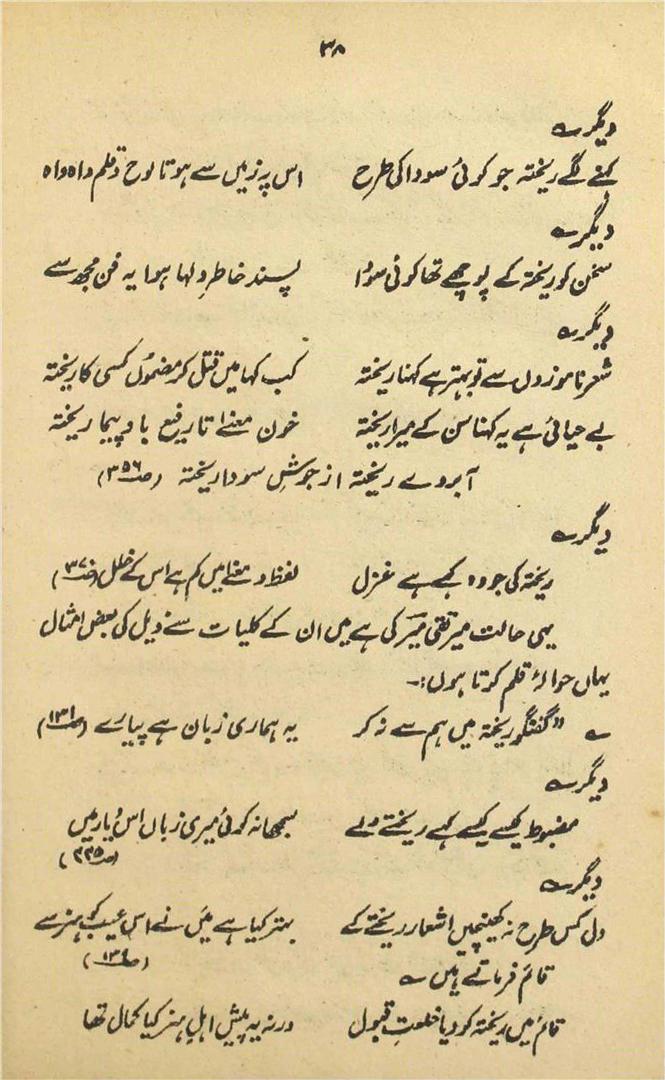 ۳۸
دیگر ؎
کہنے لگے ریختہ جو کوئی سودا کی طرح اس پہ زمیں سے ہوتا لوح و قلم واہ واہ
دیگر ؎
سخن کو ریختہ کے پوچھے تھا کوئی سودا پسند خاطر دلہا ہوا یہ فن مجھ سے
دیگر ؎
شعر ناموزوں سے تو بہتر ہے کہنا ریختہ کب کہا میں قتل کر مضموں کسی کا ریختہ
بے حیائی ہے یہ کہنا سن کے میرا ریختہ خون معنے تا رفیع باد پیما ریختہ
آبروے ریختہ از جوشِ سودا ریختہ (ص ۳۵۶)
دیگر ؎
ریختہ کی جو وہ کہے ہے غزل لفظ و معنے میں کم ہے اس کے خلل (ص ۳۷)
یہی حالت میر تقی میرؔ کی ہے میں ان کے کلیات سے ذیل کی بعض امثال
یہاں حوالۂ قلم کرتا ہوں:۔
؎ "گفتگو ریختہ میں ہم سے نہ کر یہ ہماری زبان ہے پیارے (ص ۱۳۱)
دیگر ؎
مضبوط کیسے کیسے کہے ریختے ولے سمجھا نہ کوئی میری زباں اس دیار میں
(ص ۲۳۵)
دیگر ؎
دل کس طرح نہ کھینچیں اشعار ریختے کے بہتر کیا ہے میں نے اس عیب کو ہنر سے
(ص ۱۳۶)
قائم فرماتے ہیں ؎
قائم میں ریختہ کو دیا خلعتِ قبول ورنہ یہ پیش اہلِ ہنر کیا کمال تھا